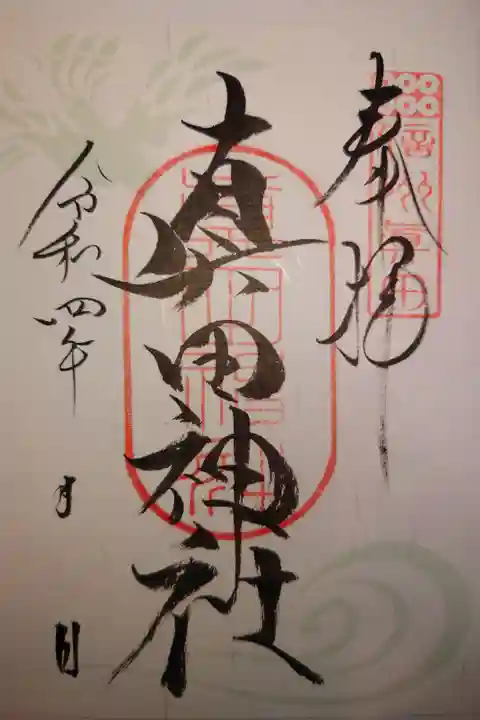 奉拝
眞田神社
令和四年
月
日